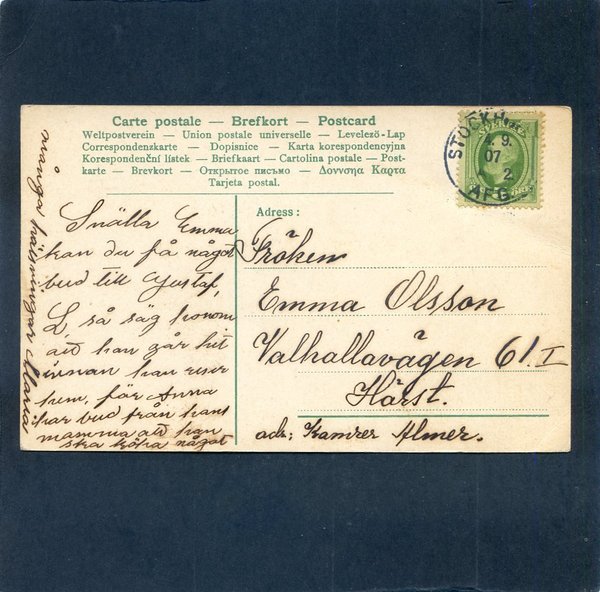 Carte postale — Brefkort — Postcard
Weltpostverein — Union postale universelle — Levelező-Lap
Correspondenzkarte — Dopisnice — Karta korespondencyjna
Korespondenční lístek — Briefkaart — Cartolina postale — Post-
karte — Brevkort — Открытое письмо — Δοννσηα Καρτα
Tarjeta postal.
STOCKH
9.
07
2
AFG.
ÖRE
Adress:
Fröken
Emma Olsson
Valhallavägen 61. I
Härst.
adr: Kamrer Almer.
Snälla Emma
kan du få något
bud till Gustaf,
så säg honom
att han går hit
innan han reser
hem, för Anna
har bud från hans
mamma att han
ska köpa något
många hälsningar Maria